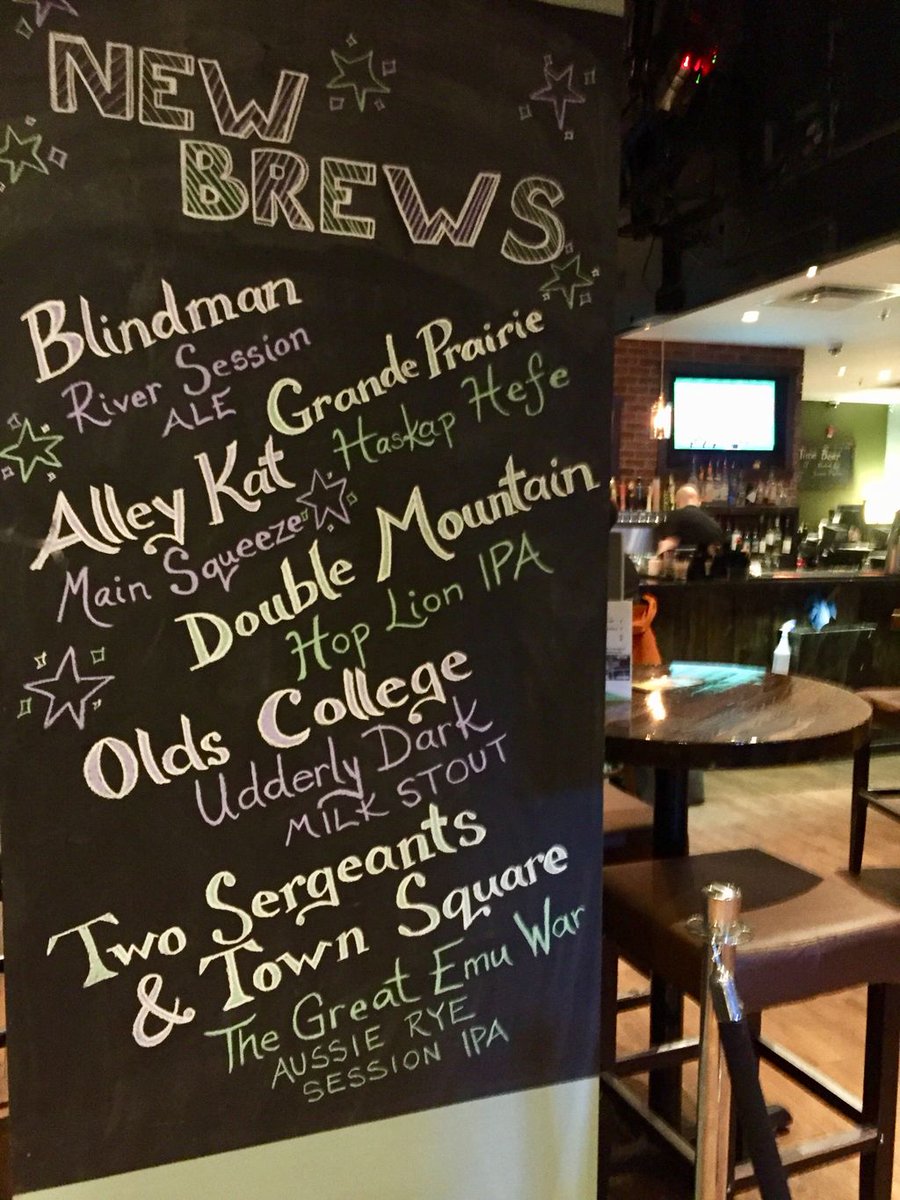 NEW
BREWS
Blindman
River Session
ALE
Grande Prairie
Haskap Hefe
Alley Kat
Main Squeeze
Double Mountain
Hop Lion IPA
Olds College
Udderly Dark
MILK STOUT
Two Sergeants
& Town Square
The Great Emu War
AUSSIE RYE
SESSION IPA
Beer